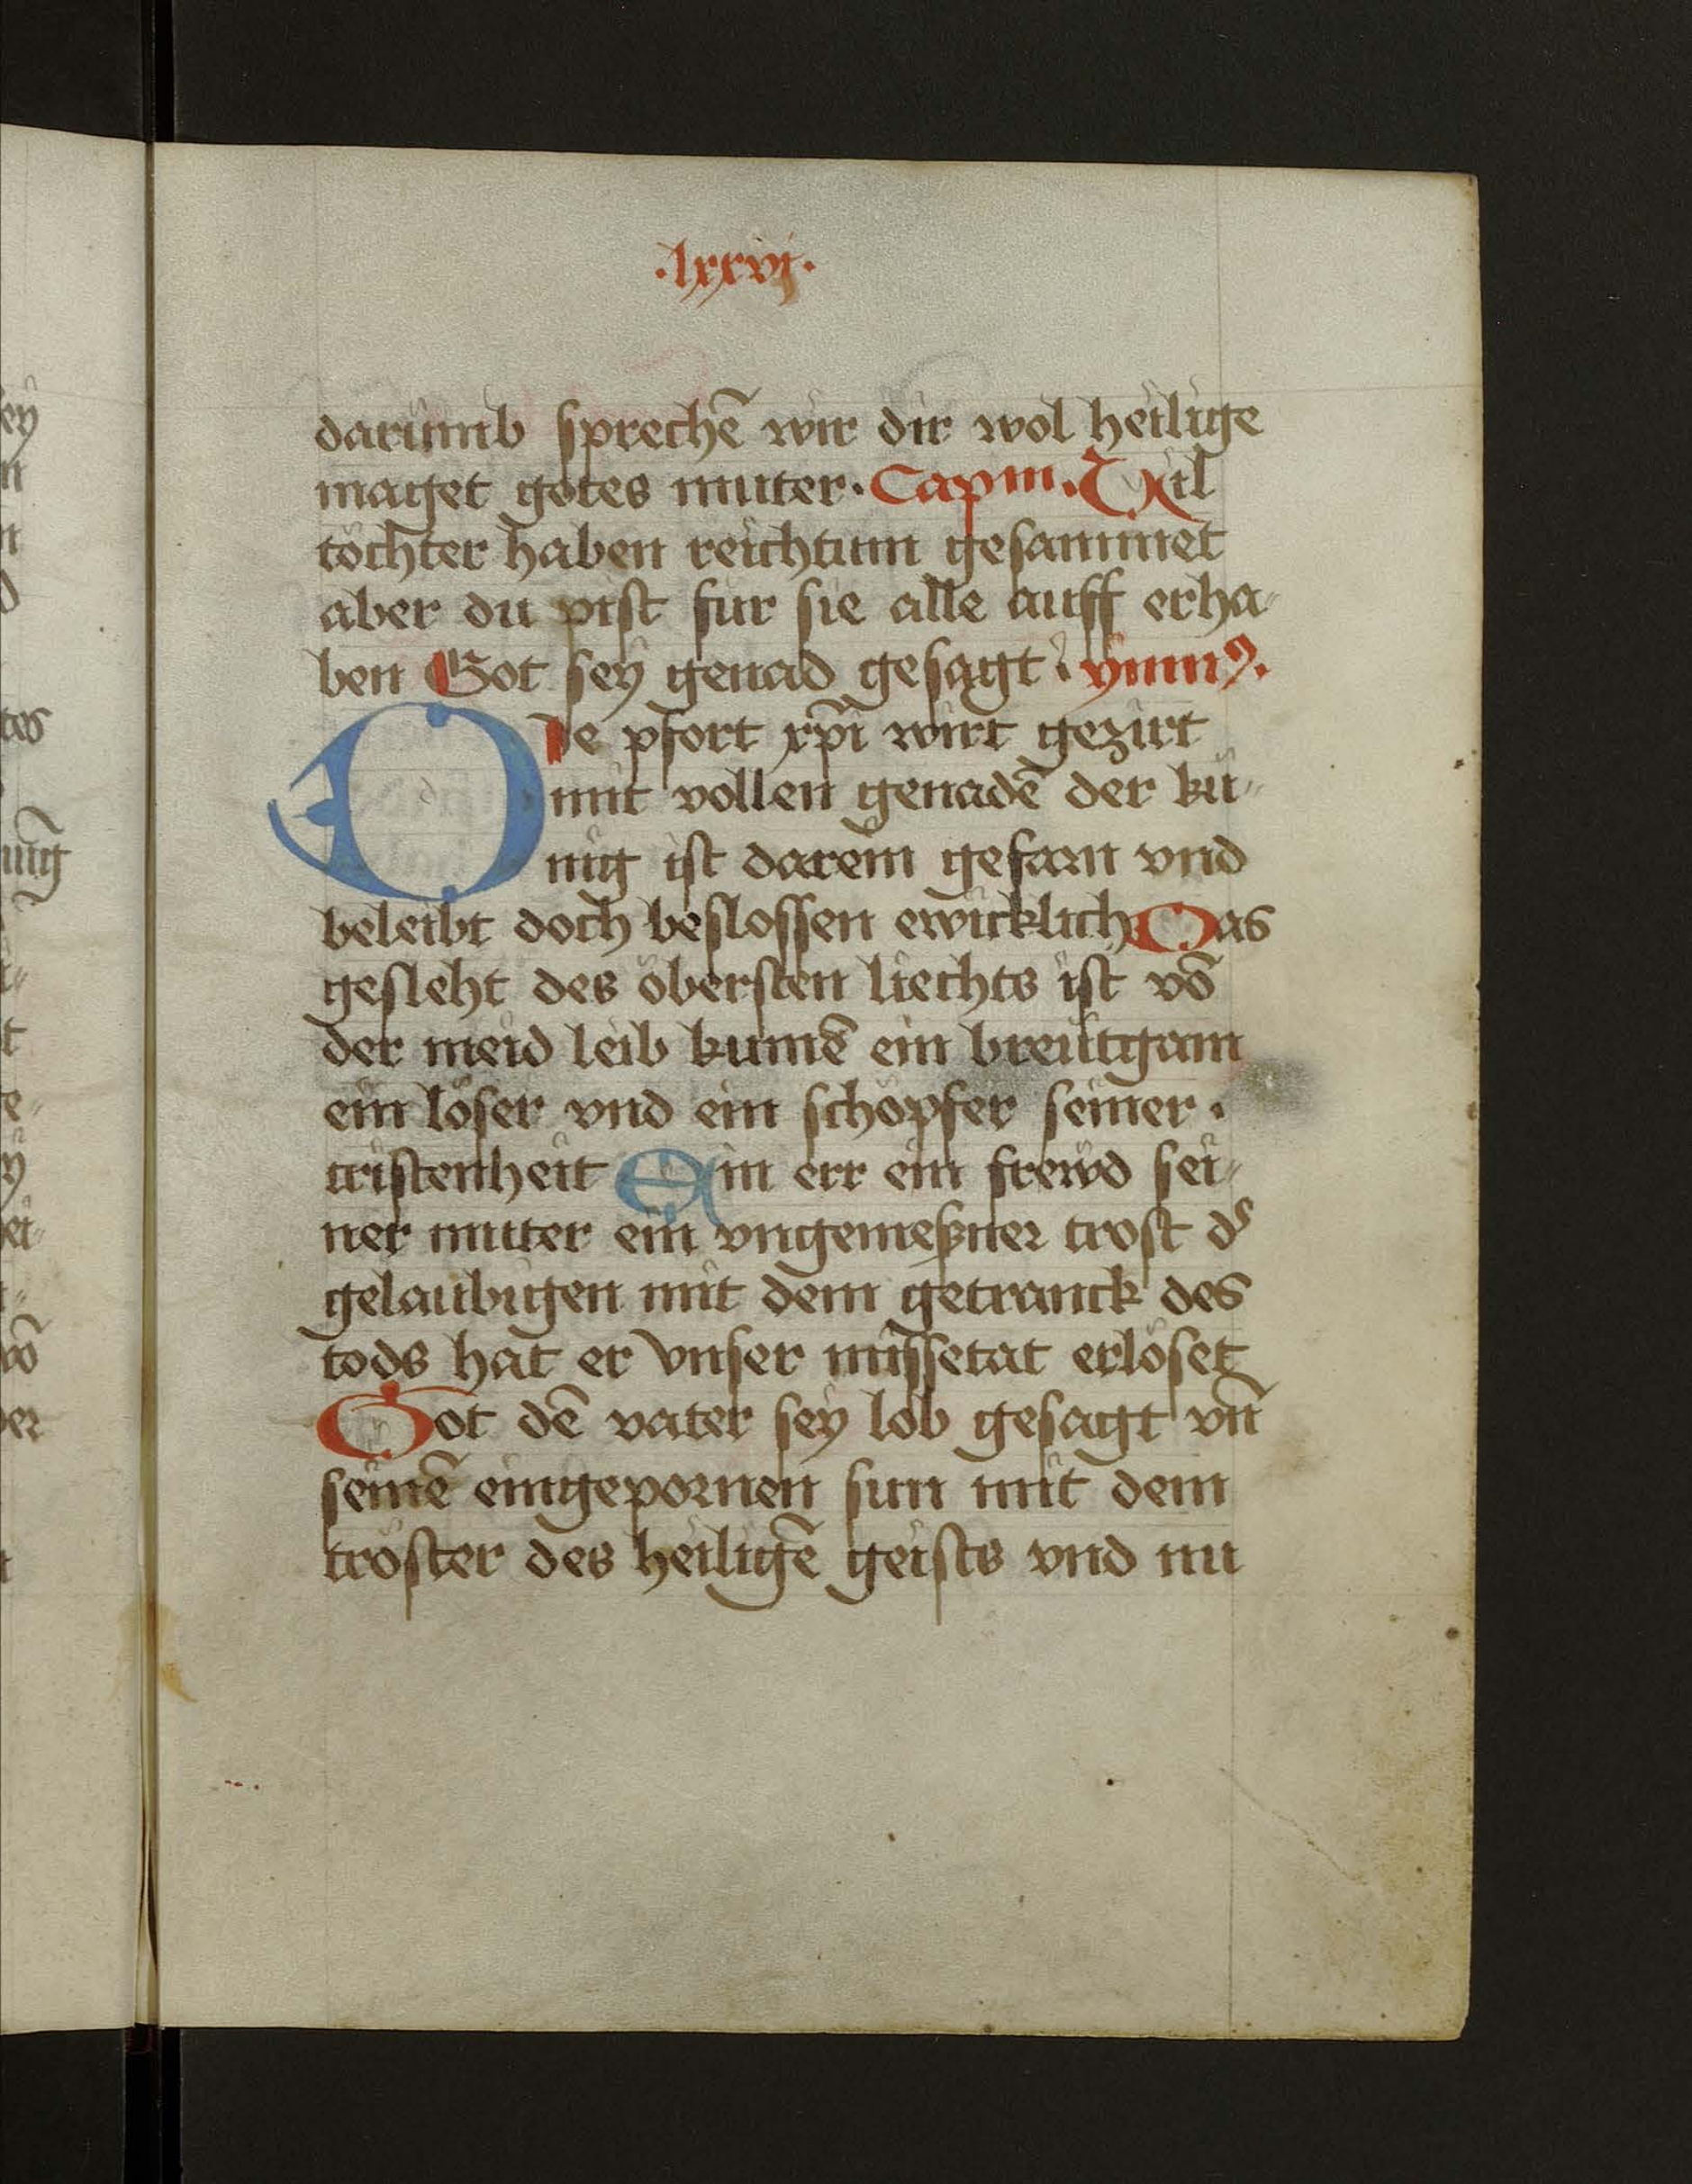 ·lxxvj·
darumb sprechē wir dir wol heilige
maget gotes muter· Capm. Vil
töchter haben reichtum gesammet
aber du pist fur sie alle auff erha-
ben Got sey genad gesagt · ymnꝰ.
Die pfort xp̄i wirt gezirt
mit vollen genadē der kü-
nig ist darein gefarn vnd
beleibt doch beslossen ewicklich Das
gesleht des öbersten liechts ist vō
der meid leib kumē ein breütgam
ein löser vnd ein schöpfer seiner ·
cristenheit Ein err ein frewd sei-
ner muter ein vngemeßner trost ds
gelaubigen mit dem getranck des
tods hat er vnser missetat erlöset
Got dē vater sey lob gesagt vn̄
seinē eingepornen sun mit dem
tröster des heiligē geists vnd nu